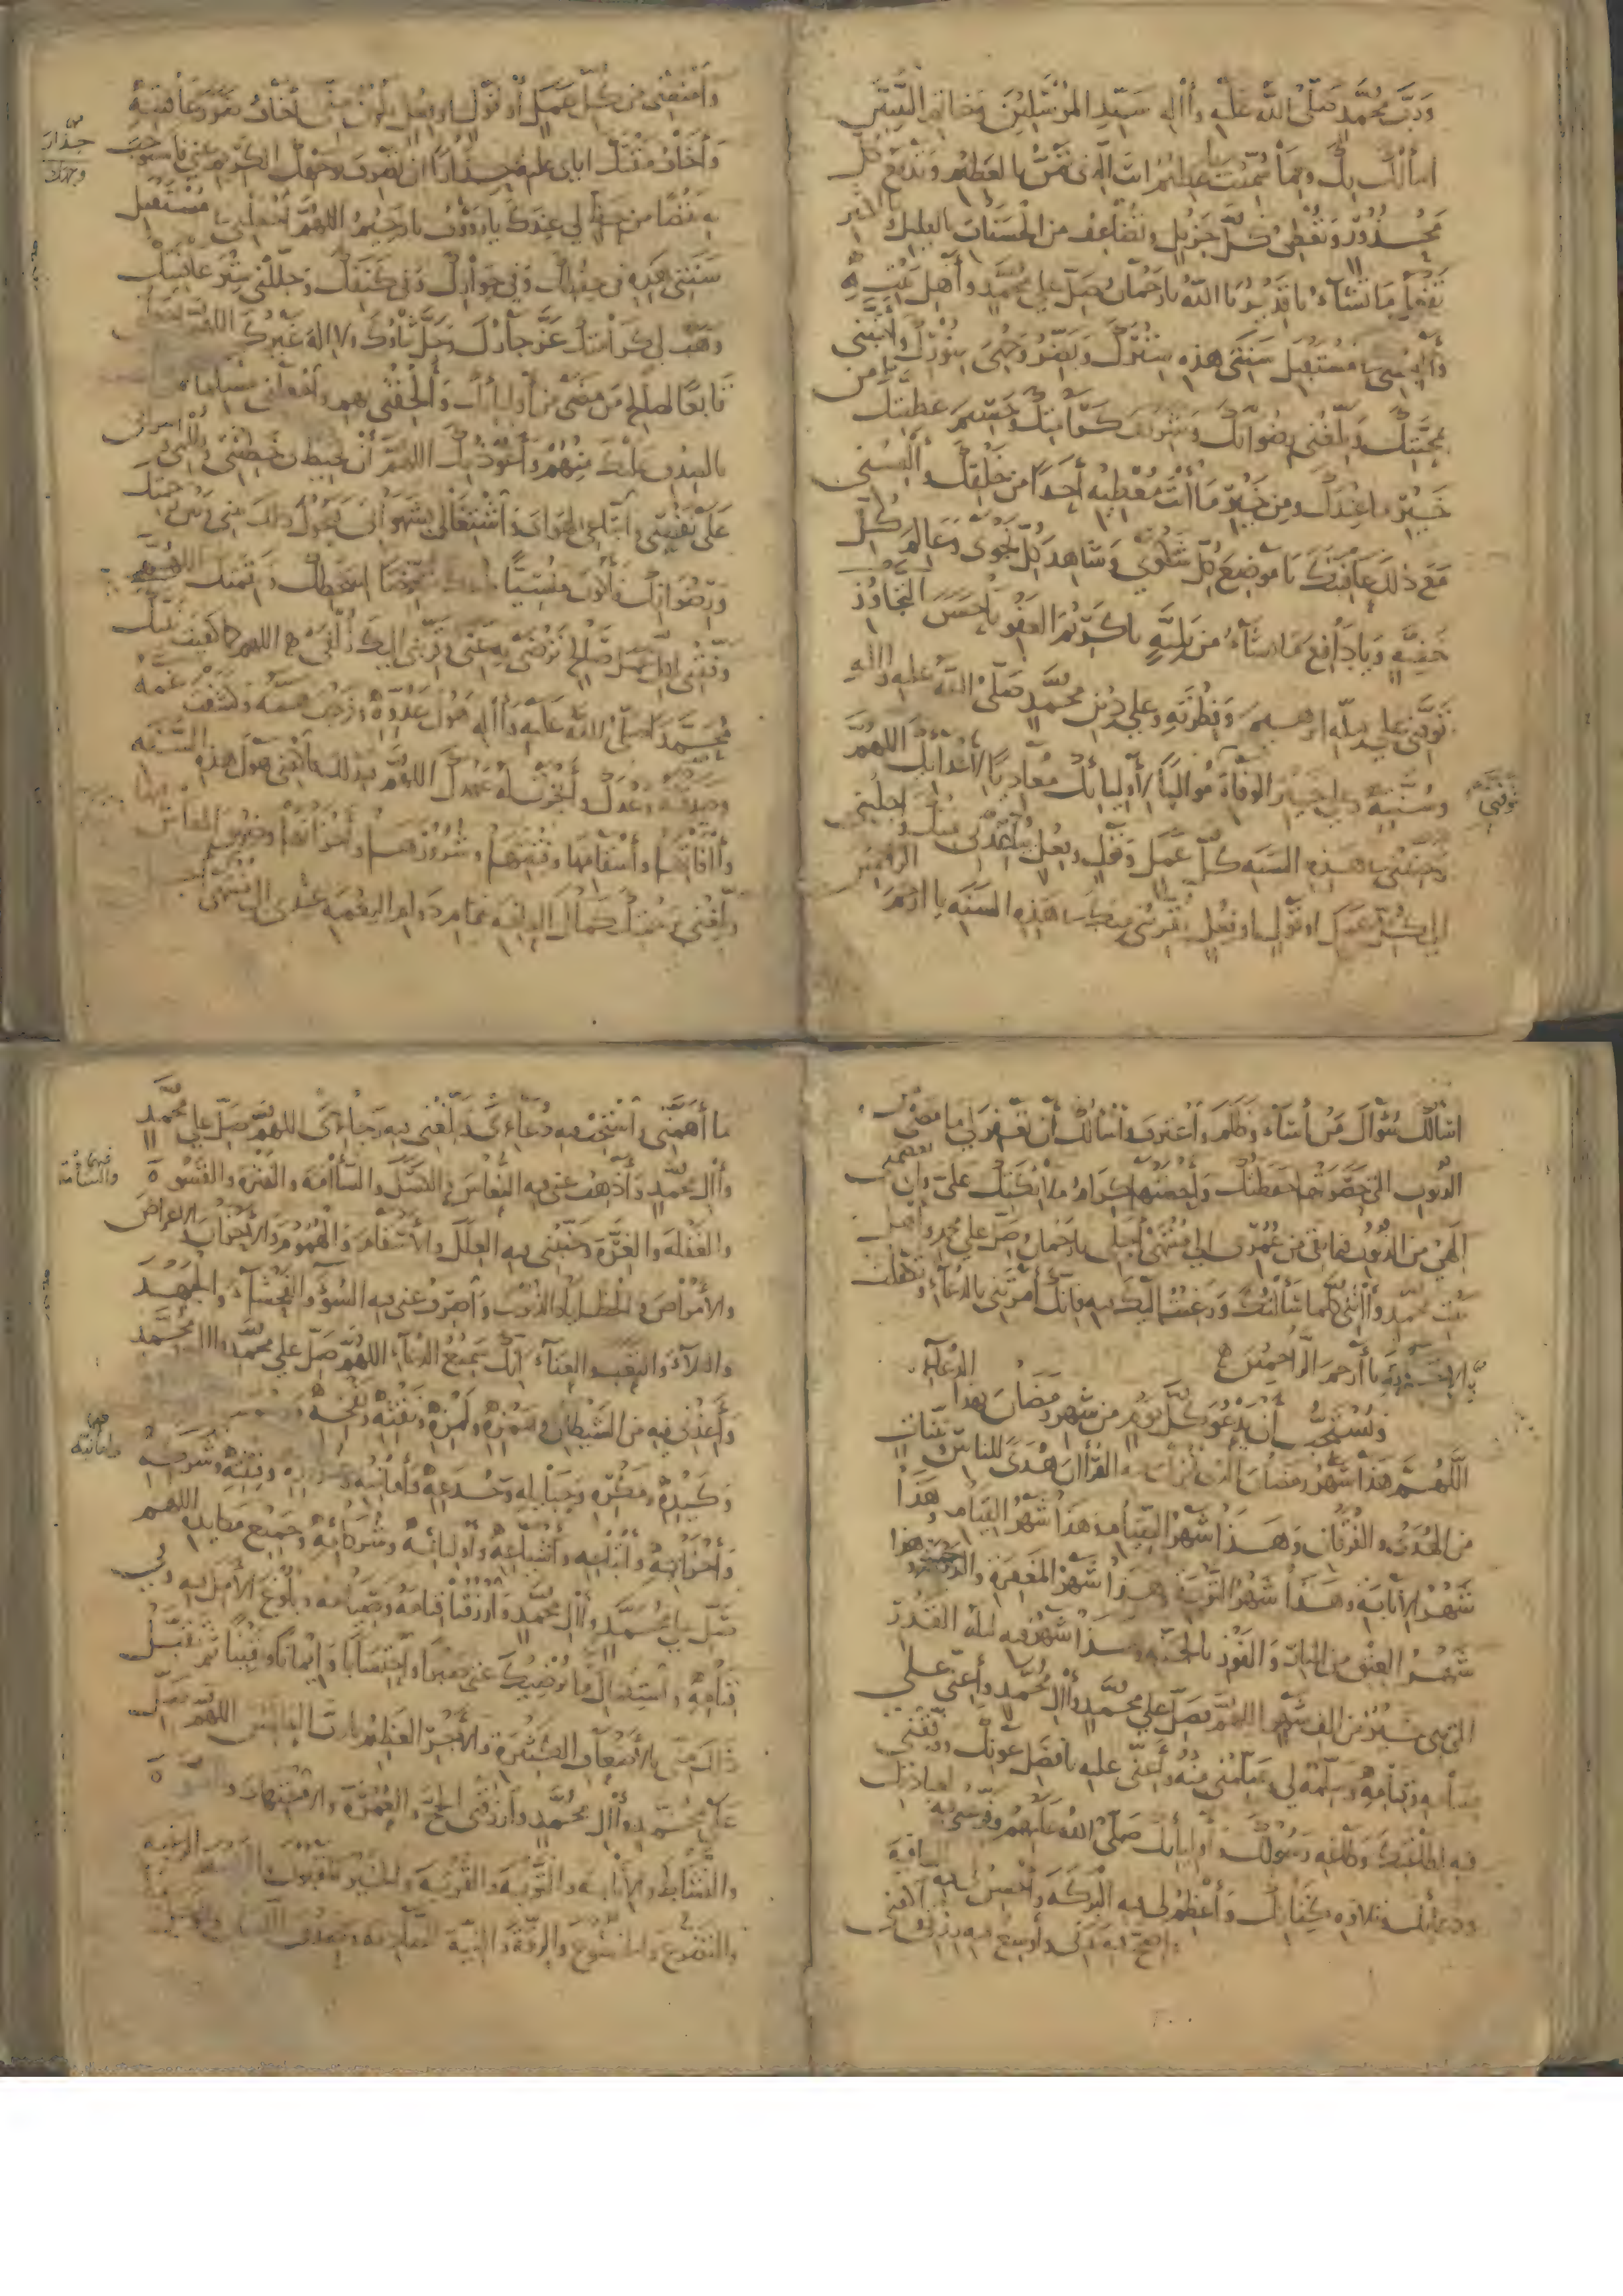 وَرَبَّ مُحَمَّدٍ صَلَّى اللَّهُ عَلَيْهِ وَآلِهِ سَيِّدِ الْمُرْسَلِينَ وَخَاتَمِ النَّبِيِّينَ
أسألك بك وبما سميت يا عظيم أنت الذي تمن بالعظيم وتدفع كل
محذور وتعطي كل جزيل وتضاعف من الحسنات بالقليل
وتفعل ما تشاء يا قدير يا الله يا رحمان صل على محمد وأهل بيته
وألبسني في مستقبل سنتي هذه سترك ونضر وجهي بنورك وأحبني
بمحبتك وبلغني رضوانك وشريف كرامتك وجسيم عطيتك من
خير ما عندك ومن خير ما أنت معطيه أحدا من خلقك وألبسني
مع ذلك عافيتك يا موضع كل شكوى وشاهد كل نجوى وعالم كل
خفية ويا دافع ما تشاء من بلية يا كريم العفو يا حسن التجاوز
توفني على ملة إبرهيم وفطرته وعلى دين محمد صلى الله عليه وآله
وسنته وعلى خير الوفاة مواليا لأوليائك معاديا لأعدائك اللهم
توفني
وجنبني في هذه السنة كل عمل وقول وفعل يباعدني منك واجلبني
إلى كل عمل أو قول أو فعل يقربني منك في هذه السنة يا أرحم الراحمين
وامنعني من كل عمل أو قول أو فعل يكون مني أخاف ضرر عاقبته
وأخاف مقتك إياي عليه حذارا أن تصرف وجهك الكريم عني فأستوجب
حذار
وجهك
به نقصا من حظ لي عندك يا رؤوف يا رحيم اللهم اجعلني في مستقبل
سنتي هذه في حفظك وفي جوارك وفي كنفك وجللني ستر عافيتك
وهب لي كرامتك عز جارك وجل ثناؤك ولا إله غيرك اللهم اجعلني
تابعا لصالح من مضى من أوليائك وألحقني بهم واجعلني مسلما لمن
بالصدق عليك منهم وأعوذ بك اللهم أن تحيط بي خطيئتي وظلمي وإسرافي
على نفسي واتباعي لهواي واشتغالي بشهواتي فيحول ذلك بيني وبين رحمتك
ورضوانك فأكون منسيا عندك متعرضا لسخطك ونقمتك اللهم
وفقني لكل عمل صالح ترضى به عني وقربني إليك زلفى اللهم كما كفيت نبيك
محمدا صلى الله عليه وآله هول عدوه وفرجت همه وكشفت غمه
وصدقته وعدك وأنجزت له عهدك اللهم فبذلك فاكفني هول هذه السنة
وآفاتها وأسقامها وفتنتها وشرورها وأحزانها وضيق المعاش فيها
وبلغني برحمتك كمال العافية بتمام دوام النعمة عندي إلى منتهى أجلي
أسألك سؤال من أساء وظلم واعترف وأسألك أن تغفر لي ما مضى من
الذنوب التي حصرتها حفظتك وأحصتها كرام ملائكتك علي وأن تعصمني
إلهي من الذنوب فيما بقي من عمري إلى منتهى أجلي يا رحمان وصل على محمد وأهل
بيت محمد وآتني كلما سألتك ورغبت إليك فيه فإنك أمرتني بالدعاء وتكفلت
بالإجابة يا أرحم الراحمين
الدعاء
ويستحب أن يدعو كل يوم من شهر رمضان بهذا
اللهم هذا شهر رمضان الذي أنزلت فيه القرآن هدى للناس وبينات
من الهدى والفرقان وهذا شهر الصيام وهذا شهر القيام وهذا
شهر الإنابة وهذا شهر التوبة وهذا شهر المغفرة والرحمة وهذا
شهر العتق من النار والفوز بالجنة وهذا شهر فيه ليلة القدر
التي هي خير من ألف شهر اللهم فصل على محمد وآل محمد وأعني على
صيامه وقيامه وسلمه لي وسلمني منه وأعني عليه بأفضل عونك ووفقني
فيه لطاعتك وطاعة رسولك وأوليائك صلى الله عليهم وفرغني فيه لعبادتك
ودعائك وتلاوة كتابك وأعظم لي فيه البركة وأحسن لي فيه العافية
وأصح فيه بدني وأوسع فيه رزقي واكفني
ما أهمني واستجب فيه دعائي وبلغني فيه رجائي اللهم صل على محمد
وآل محمد وأذهب عني فيه النعاس والكسل والسآمة والفترة والقسوة
والسآمة
والغفلة والغرة وجنبني فيه العلل والأسقام والهموم والأحزان والأعراض
والأمراض والخطايا والذنوب واصرف عني فيه السوء والفحشاء والجهد
والبلاء والتعب والعناء إنك سميع الدعاء اللهم صل على محمد وآل محمد
وأعذني فيه من الشيطان وهمزه ولمزه ونفثه ونفخه
وكيده ومكره وحبائله وخدعه وأمانيه وغروره وفتنته وشركه
وأمانيه
وأحزابه وأتباعه وأشياعه وأوليائه وشركائه وجميع مكايده اللهم
صل على محمد وآل محمد وارزقنا قيامه وصيامه وبلوغ الأمل فيه وفي
قيامه واستكمال ما يرضيك عني صبرا واحتسابا وإيمانا ويقينا ثم تقبل
ذلك مني بالأضعاف الكثيرة والأجر العظيم يا رب العالمين اللهم صل
على محمد وآل محمد وارزقني الحج والعمرة والاجتهاد والقوة
والنشاط والإنابة والتوبة والقربة والخير المقبول والرغبة
والتضرع والخشوع والرقة والنية الصادقة وصدق اللسان